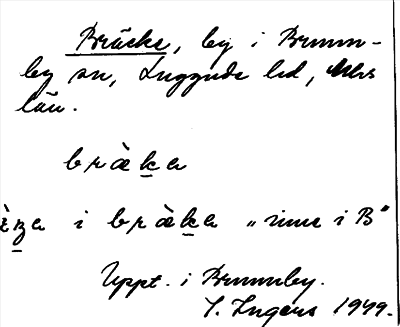 Bräcke, by i Brunn-
by sn, Luggude hd, Mlhs
län.
bràka
i bràka "inne i B"
Uppt. i Brunnby.
I. Ingers 1949.